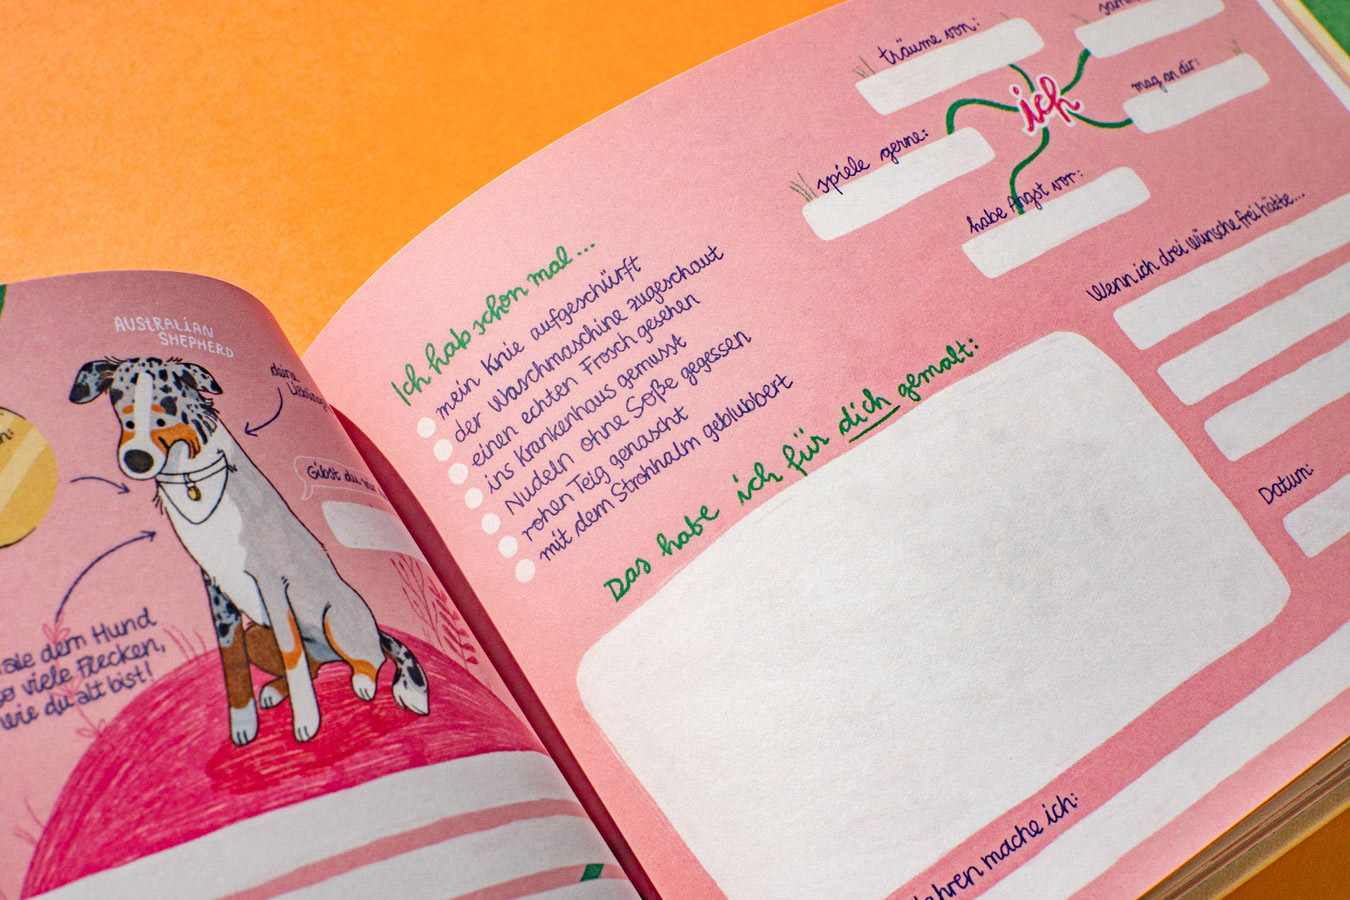 AUSTRALIAN
SHEPHERD
deine
Gibst du
dem Hund
so viele Flecken,
wie du alt bist!
Ich hab schon mal...
mein Knie aufgeschürft
der Waschmaschine zugeschaut
einen echten Frosch gesehen
ins Krankenhaus gemusst
Nudeln ohne Soße gegessen
rohen Teig genascht
mit dem Strohhalm geblubbert
Das habe ich für dich gemalt:
träume von:
mag an dir:
ich
spiele gerne:
habe Angst vor:
Wenn ich drei Wünsche frei hätte...
Datum:
mache ich: